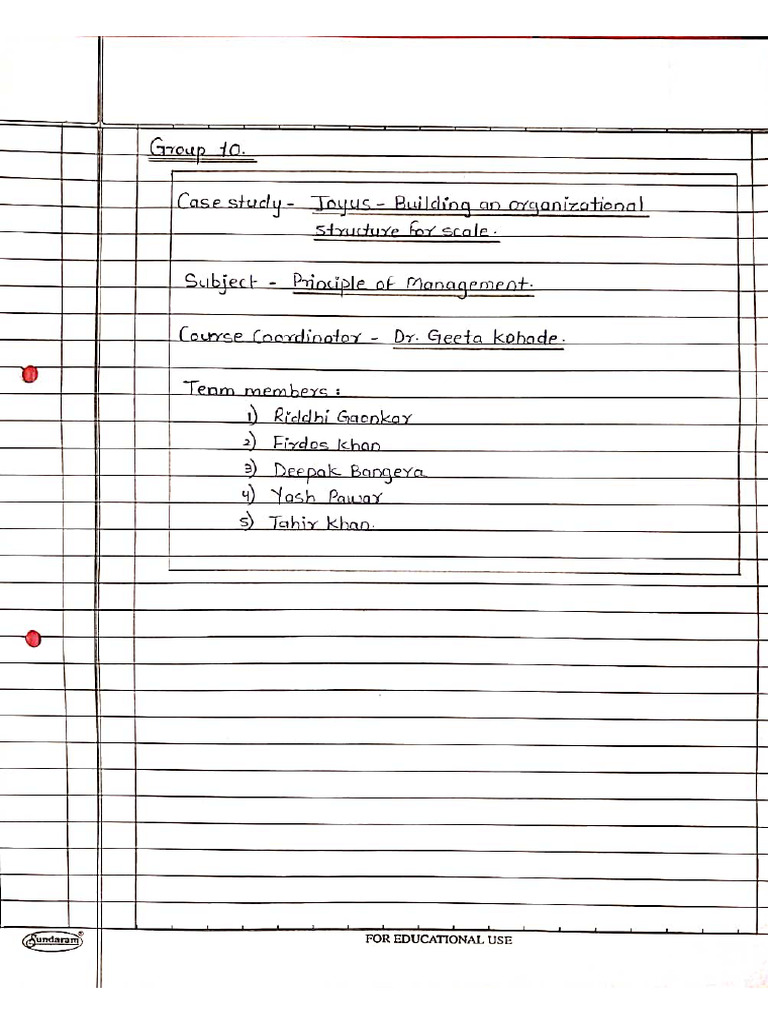 Group 10.
Case study - Joyus - Building an organizational
structure for scale.
Subject - Principle of Management.
Course Coordinator - Dr. Geeta Kohade.
Team members :
1) Riddhi Gaonkar
2) Firdos Khan
3) Deepak Bangera
4) Yash Pawar
5) Tahir Khan.
Sundaram®
FOR EDUCATIONAL USE